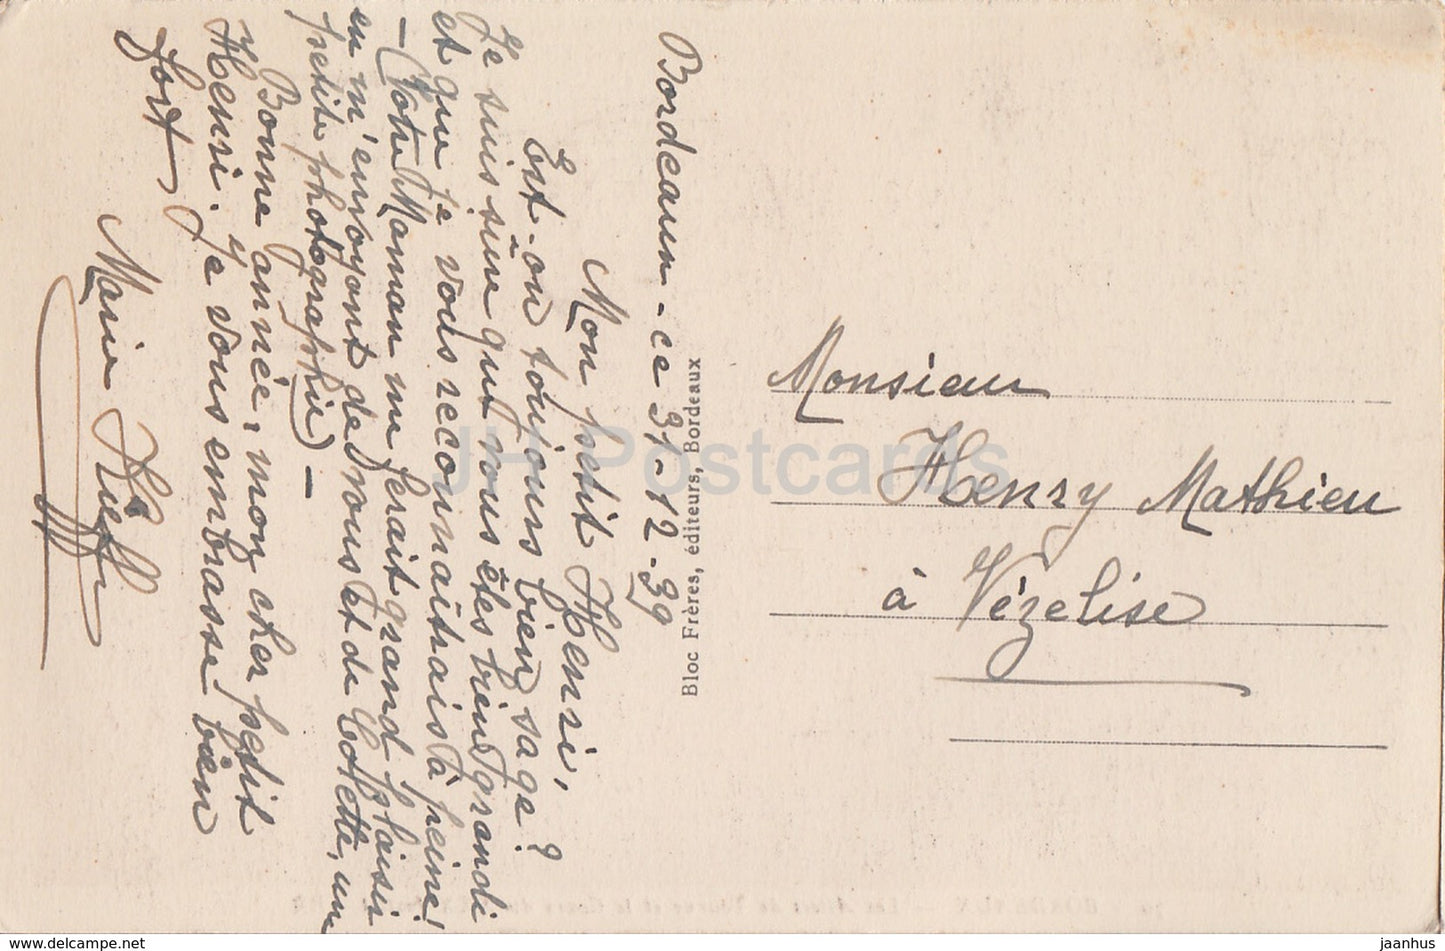 Bordeaux - ce 31-12-39
Mon petit Henri,
Est-on toujours bien sage ?
Je suis sûre que vous êtes bien grandi
et que je vous reconnaîtrais à peine !
- (Votre Maman me ferait grand plaisir
en m'envoyant de vous et de Collette, une
petite photographie) -
Bonne année, mon cher petit
Henri. Je vous embrasse bien
fort
Marie
Bloc Frères, éditeurs, Bordeaux
Monsieur
Henry Mathieu
à Vézelise
JH Postcards
www.delcampe.net
jaanhus